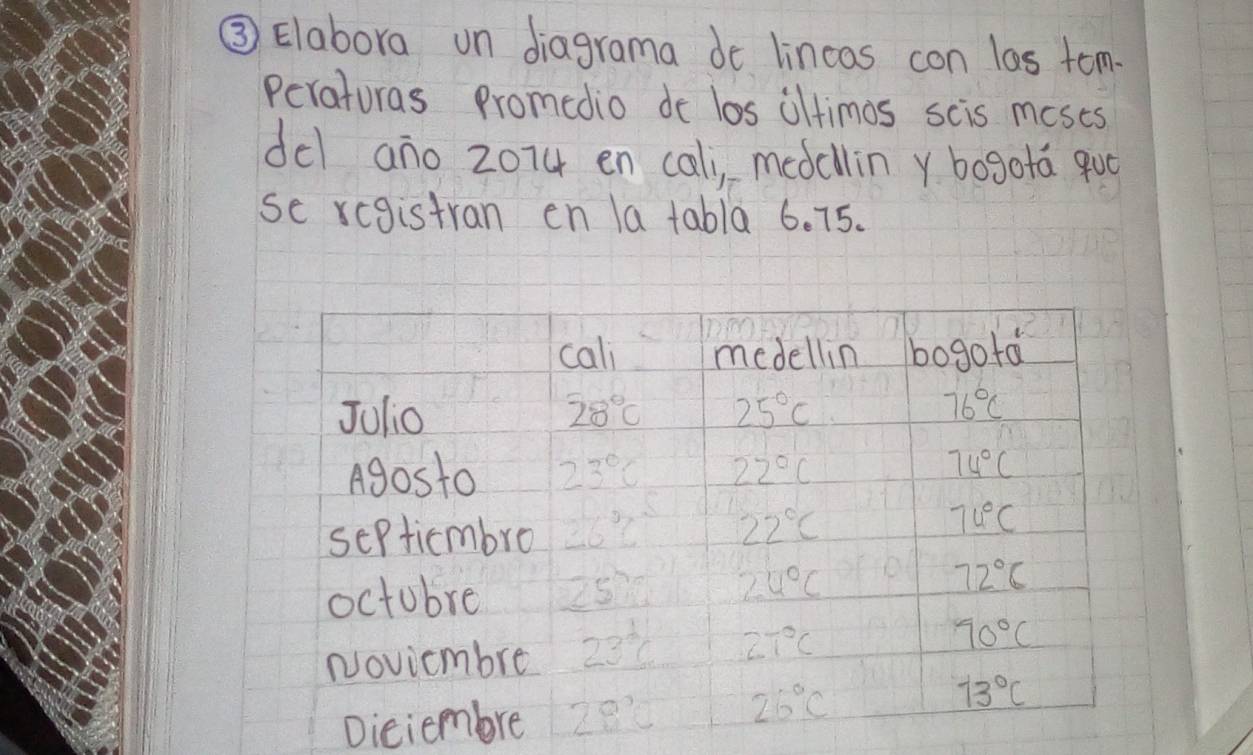 ③ Elabora un diagrama de lineas con las tem-
peraturas promedio de los últimos seis meses
del año 2014 en cali, medellin y bogotá que
se registran en la tabla 6.15.
cali medellin bogotá
Julio 28°C 25°C 16°C
Agosto 23°C 22°C 14°C
septiembre 26°C 22°C 14°C
octubre 25°C 24°C 12°C
Noviembre 23°C 21°C 10°C
Dieiembre 28°C 26°C 13°C